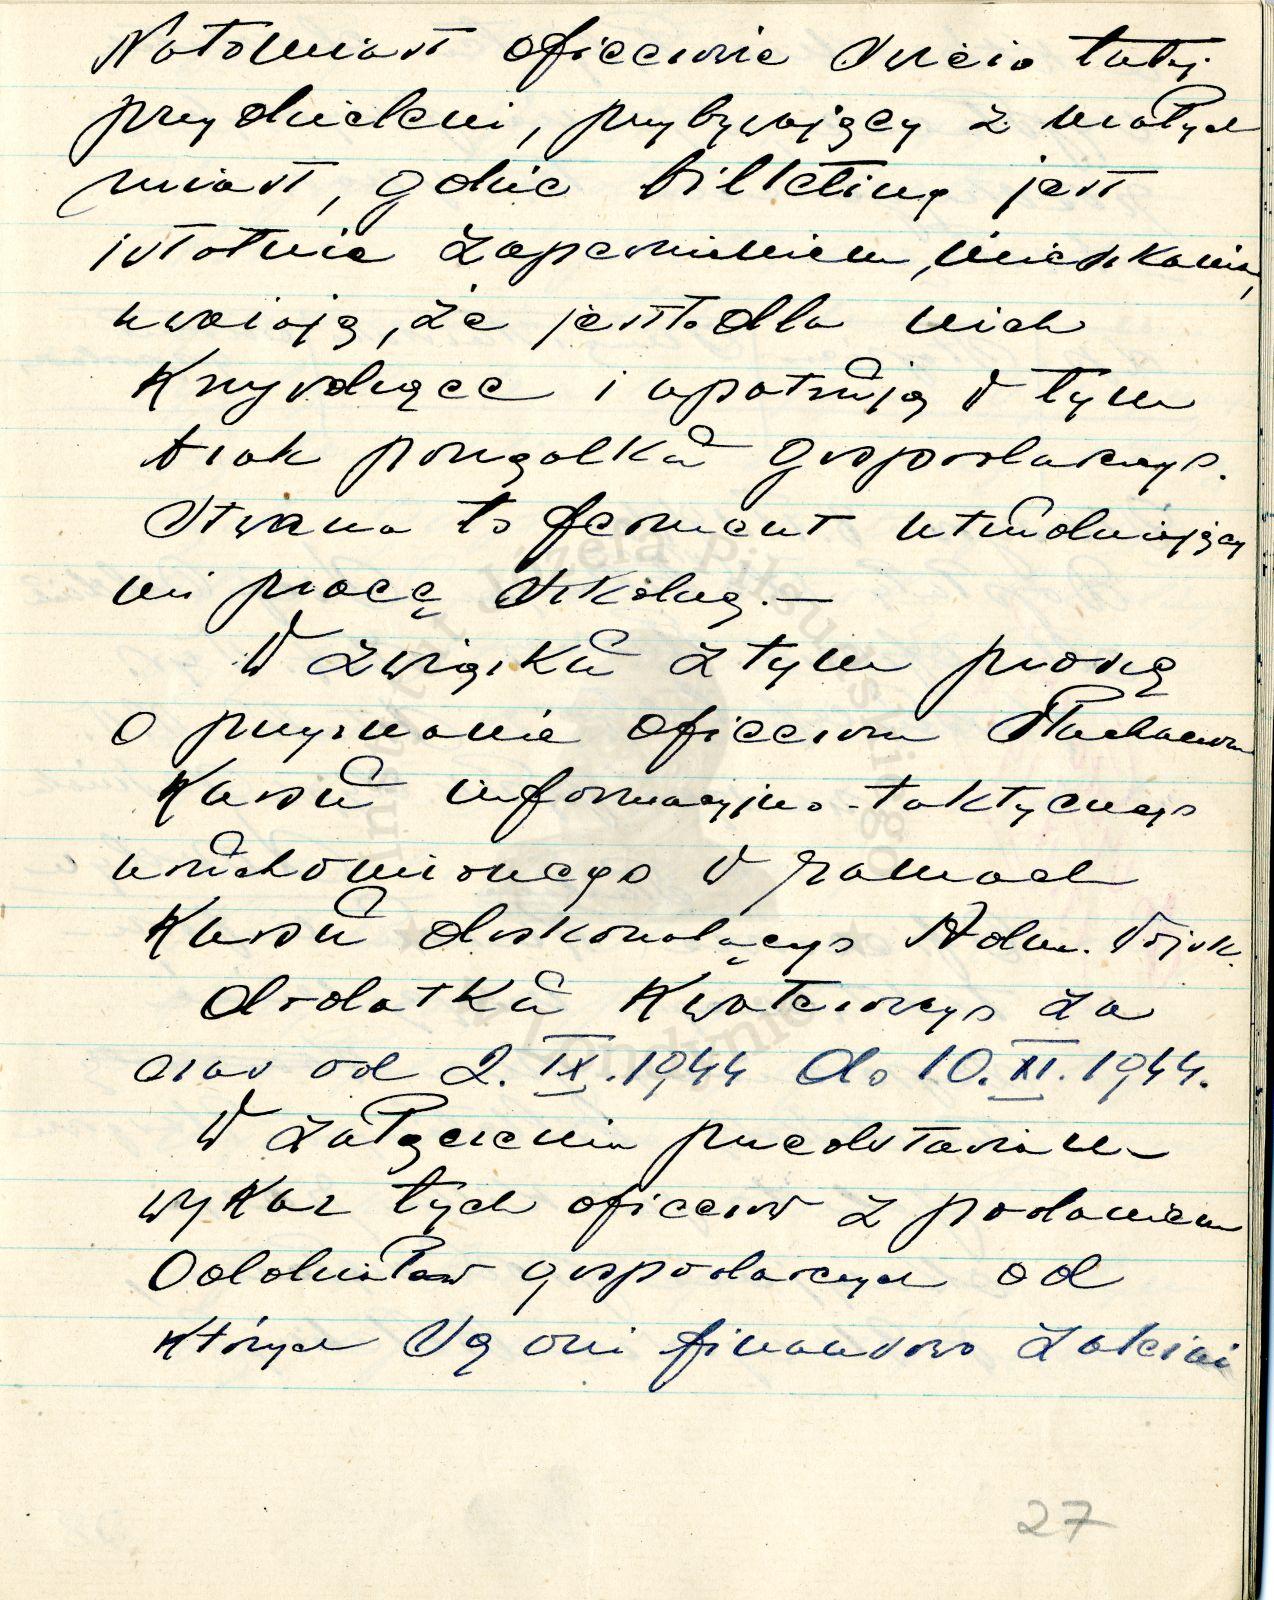 Natomiast oficerowie świeżo tutaj
przydzieleni, przybywający z małych
miast, gdzie billeting jest
istotnie zapewnieniem mieszkania,
uważają, że jest to dla nich
krzywdzące i upatrują w tym
brak porządku gospodarczego.
Stwarza to ferment utrudniający
mi pracę szkolną. —
W związku z tym proszę
o przyznanie oficerom słuchaczom
Kursu informacyjno-taktycznego
uruchomionego w ramach
Kursu doskonalącego Adm. Wojsk.
dodatku kwaterowego za
czas od 2. IX. 1944 do 10. XI. 1944.
W załączeniu przedstawiam
wykaz tych oficerów z podaniem
Oddziałów gospodarczych od
których są oni finansowo zależni
27
Instytut Józefa Piłsudskiego
w Londynie